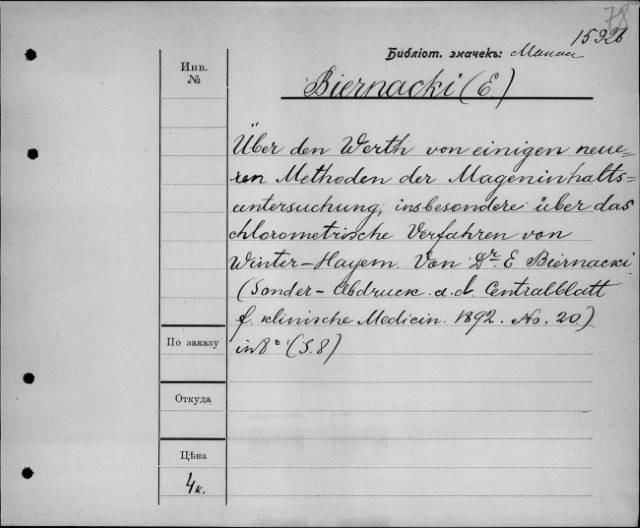 78
15926
Библіот. значекъ:
Инв.
№
Biernacki (E)
Über den Werth von einigen neue=
ren Methoden der Mageninhalts=
untersuchung, insbesondere über das
chlorometrische Verfahren von
Winter-Hayem. Von Dr. E Biernacki
(Sonder-Abdruck a. d. Centralblatt
f. klinische Medicin. 1892. No. 20)
По заказу
in 8° (S. 8)
Откуда
Цѣна
4 к.